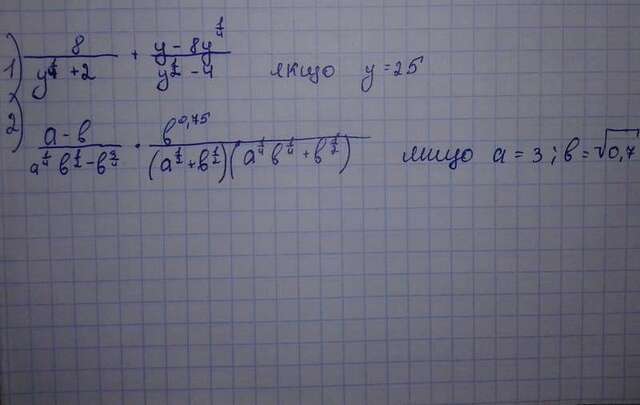 1) 8/(y^(1/4) + 2) + (y - 8y^(1/4))/(y^(1/2) - 4) якщо y = 25
2) (a - b)/(a^(1/4) b^(1/2) - b^(3/4)) · b^(0,75)/((a^(1/2) + b^(1/2))(a^(1/4) b^(1/4) + b^(1/2))) якщо a = 3; b = √0,7